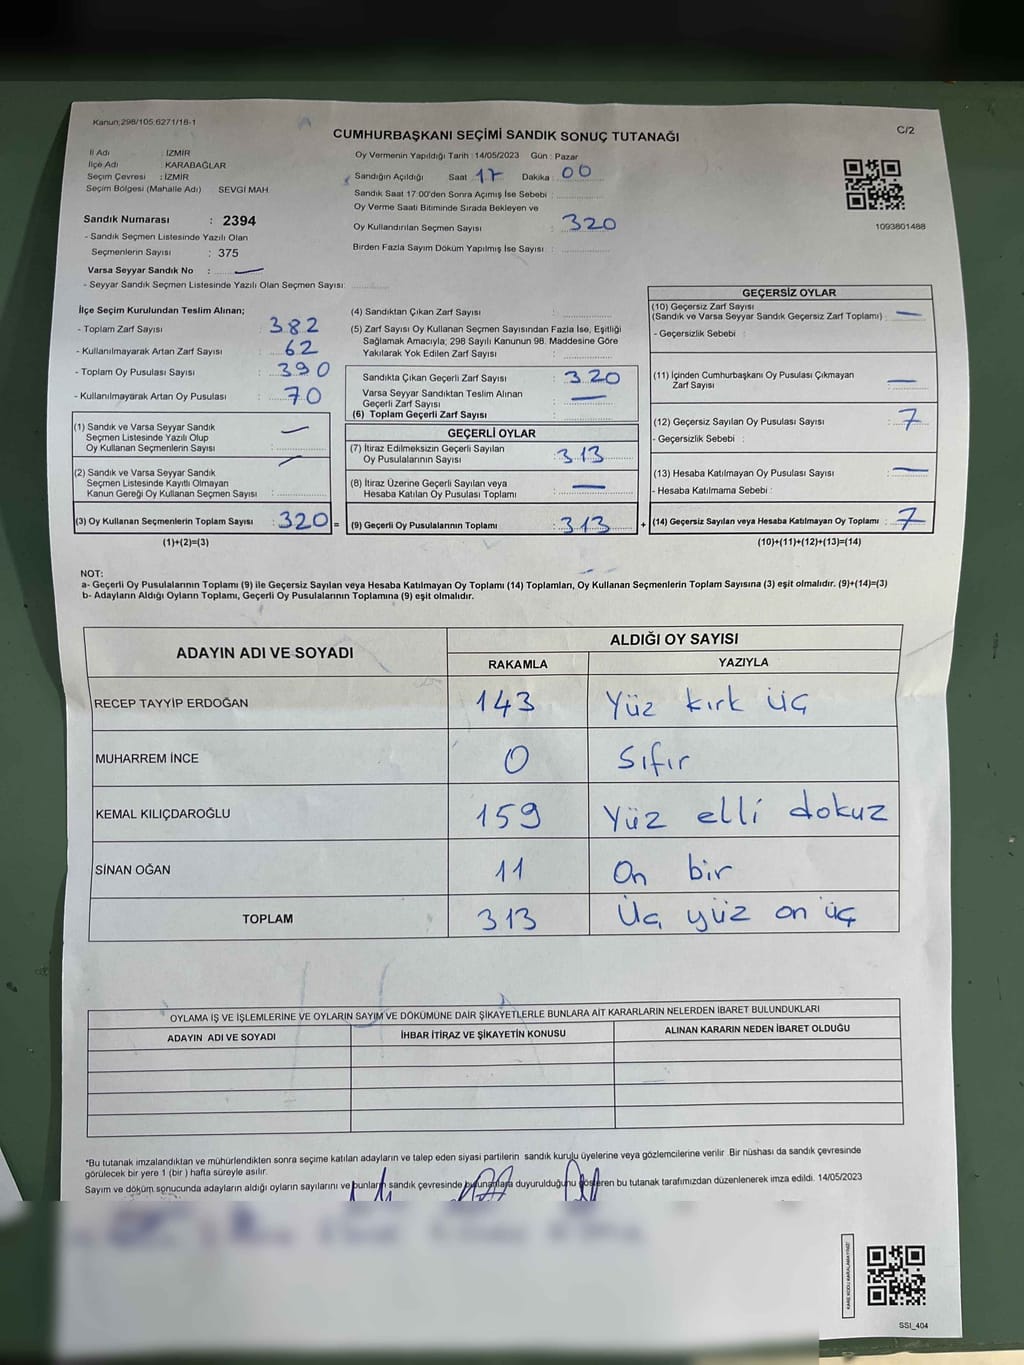 Kanun;298/105;6271/18-1
CUMHURBAŞKANI SEÇİMİ SANDIK SONUÇ TUTANAĞI
C/2
İl Adı : İZMİR
İlçe Adı : KARABAĞLAR
Seçim Çevresi : İZMİR
Seçim Bölgesi (Mahalle Adı) SEVGİ MAH
Oy Vermenin Yapıldığı Tarih : 14/05/2023 Gün : Pazar
Sandığın Açıldığı Saat 17 Dakika : 00
Sandık Saat 17:00'den Sonra Açımış İse Sebebi :
Oy Verme Saati Bitiminde Sırada Bekleyen ve
Oy Kullandırılan Seçmen Sayısı : 320
Birden Fazla Sayım Döküm Yapılmış İse Sayısı :
1093801488
Sandık Numarası : 2394
- Sandık Seçmen Listesinde Yazılı Olan
Seçmenlerin Sayısı : 375
Varsa Seyyar Sandık No : —
- Seyyar Sandık Seçmen Listesinde Yazılı Olan Seçmen Sayısı:
İlçe Seçim Kurulundan Teslim Alınan;
- Toplam Zarf Sayısı : 382
- Kullanılmayarak Artan Zarf Sayısı : 62
- Toplam Oy Pusulası Sayısı : 390
- Kullanılmayarak Artan Oy Pusulası : 70
(1) Sandık ve Varsa Seyyar Sandık
Seçmen Listesinde Yazılı Olup
Oy Kullanan Seçmenlerin Sayısı : —
(2) Sandık ve Varsa Seyyar Sandık
Seçmen Listesinde Kayıtlı Olmayan
Kanun Gereği Oy Kullanan Seçmen Sayısı : —
(3) Oy Kullanan Seçmenlerin Toplam Sayısı : 320 =
(1)+(2)=(3)
(4) Sandıktan Çıkan Zarf Sayısı :
(5) Zarf Sayısı Oy Kullanan Seçmen Sayısından Fazla İse, Eşitliği
Sağlamak Amacıyla; 298 Sayılı Kanunun 98. Maddesine Göre
Yakılarak Yok Edilen Zarf Sayısı :
Sandıkta Çıkan Geçerli Zarf Sayısı : 320
Varsa Seyyar Sandıktan Teslim Alınan
Geçerli Zarf Sayısı : —
(6) Toplam Geçerli Zarf Sayısı :
GEÇERLİ OYLAR
(7) İtiraz Edilmeksizin Geçerli Sayılan
Oy Pusulalarının Sayısı : 313
(8) İtiraz Üzerine Geçerli Sayılan veya
Hesaba Katılan Oy Pusulası Toplamı : —
(9) Geçerli Oy Pusulalarının Toplamı : 313 +
GEÇERSİZ OYLAR
(10) Geçersiz Zarf Sayısı
(Sandık ve Varsa Seyyar Sandık Geçersiz Zarf Toplamı) : —
- Geçersizlik Sebebi :
(11) İçinden Cumhurbaşkanı Oy Pusulası Çıkmayan
Zarf Sayısı : —
(12) Geçersiz Sayılan Oy Pusulası Sayısı : 7
- Geçersizlik Sebebi :
(13) Hesaba Katılmayan Oy Pusulası Sayısı : —
- Hesaba Katılmama Sebebi :
(14) Geçersiz Sayılan veya Hesaba Katılmayan Oy Toplamı : 7
(10)+(11)+(12)+(13)=(14)
NOT:
a- Geçerli Oy Pusulalarının Toplamı (9) ile Geçersiz Sayılan veya Hesaba Katılmayan Oy Toplamı (14) Toplamları, Oy Kullanan Seçmenlerin Toplam Sayısına (3) eşit olmalıdır. (9)+(14)=(3)
b- Adayların Aldığı Oyların Toplamı, Geçerli Oy Pusulalarının Toplamına (9) eşit olmalıdır.
ADAYIN ADI VE SOYADI ALDIĞI OY SAYISI
RAKAMLA YAZIYLA
RECEP TAYYİP ERDOĞAN 143 Yüz kırk üç
MUHARREM İNCE 0 Sıfır
KEMAL KILIÇDAROĞLU 159 Yüz elli dokuz
SİNAN OĞAN 11 On bir
TOPLAM 313 Üç yüz on üç
OYLAMA İŞ VE İŞLEMLERİNE VE OYLARIN SAYIM VE DÖKÜMÜNE DAİR ŞİKAYETLERLE BUNLARA AİT KARARLARIN NELERDEN İBARET BULUNDUKLARI
ADAYIN ADI VE SOYADI İHBAR İTİRAZ VE ŞİKAYETİN KONUSU ALINAN KARARIN NEDEN İBARET OLDUĞU
*Bu tutanak imzalandıktan ve mühürlendikten sonra seçime katılan adayların ve talep eden siyasi partilerin sandık kurulu üyelerine veya gözlemcilerine verilir Bir nüshası da sandık çevresinde
görülecek bir yere 1 (bir ) hafta süreyle asılır.
Sayım ve döküm sonucunda adayların aldığı oyların sayılarını ve bunların sandık çevresinde bulunanlara duyurulduğunu gösteren bu tutanak tarafımızdan düzenlenerek imza edildi. 14/05/2023
SSI_404